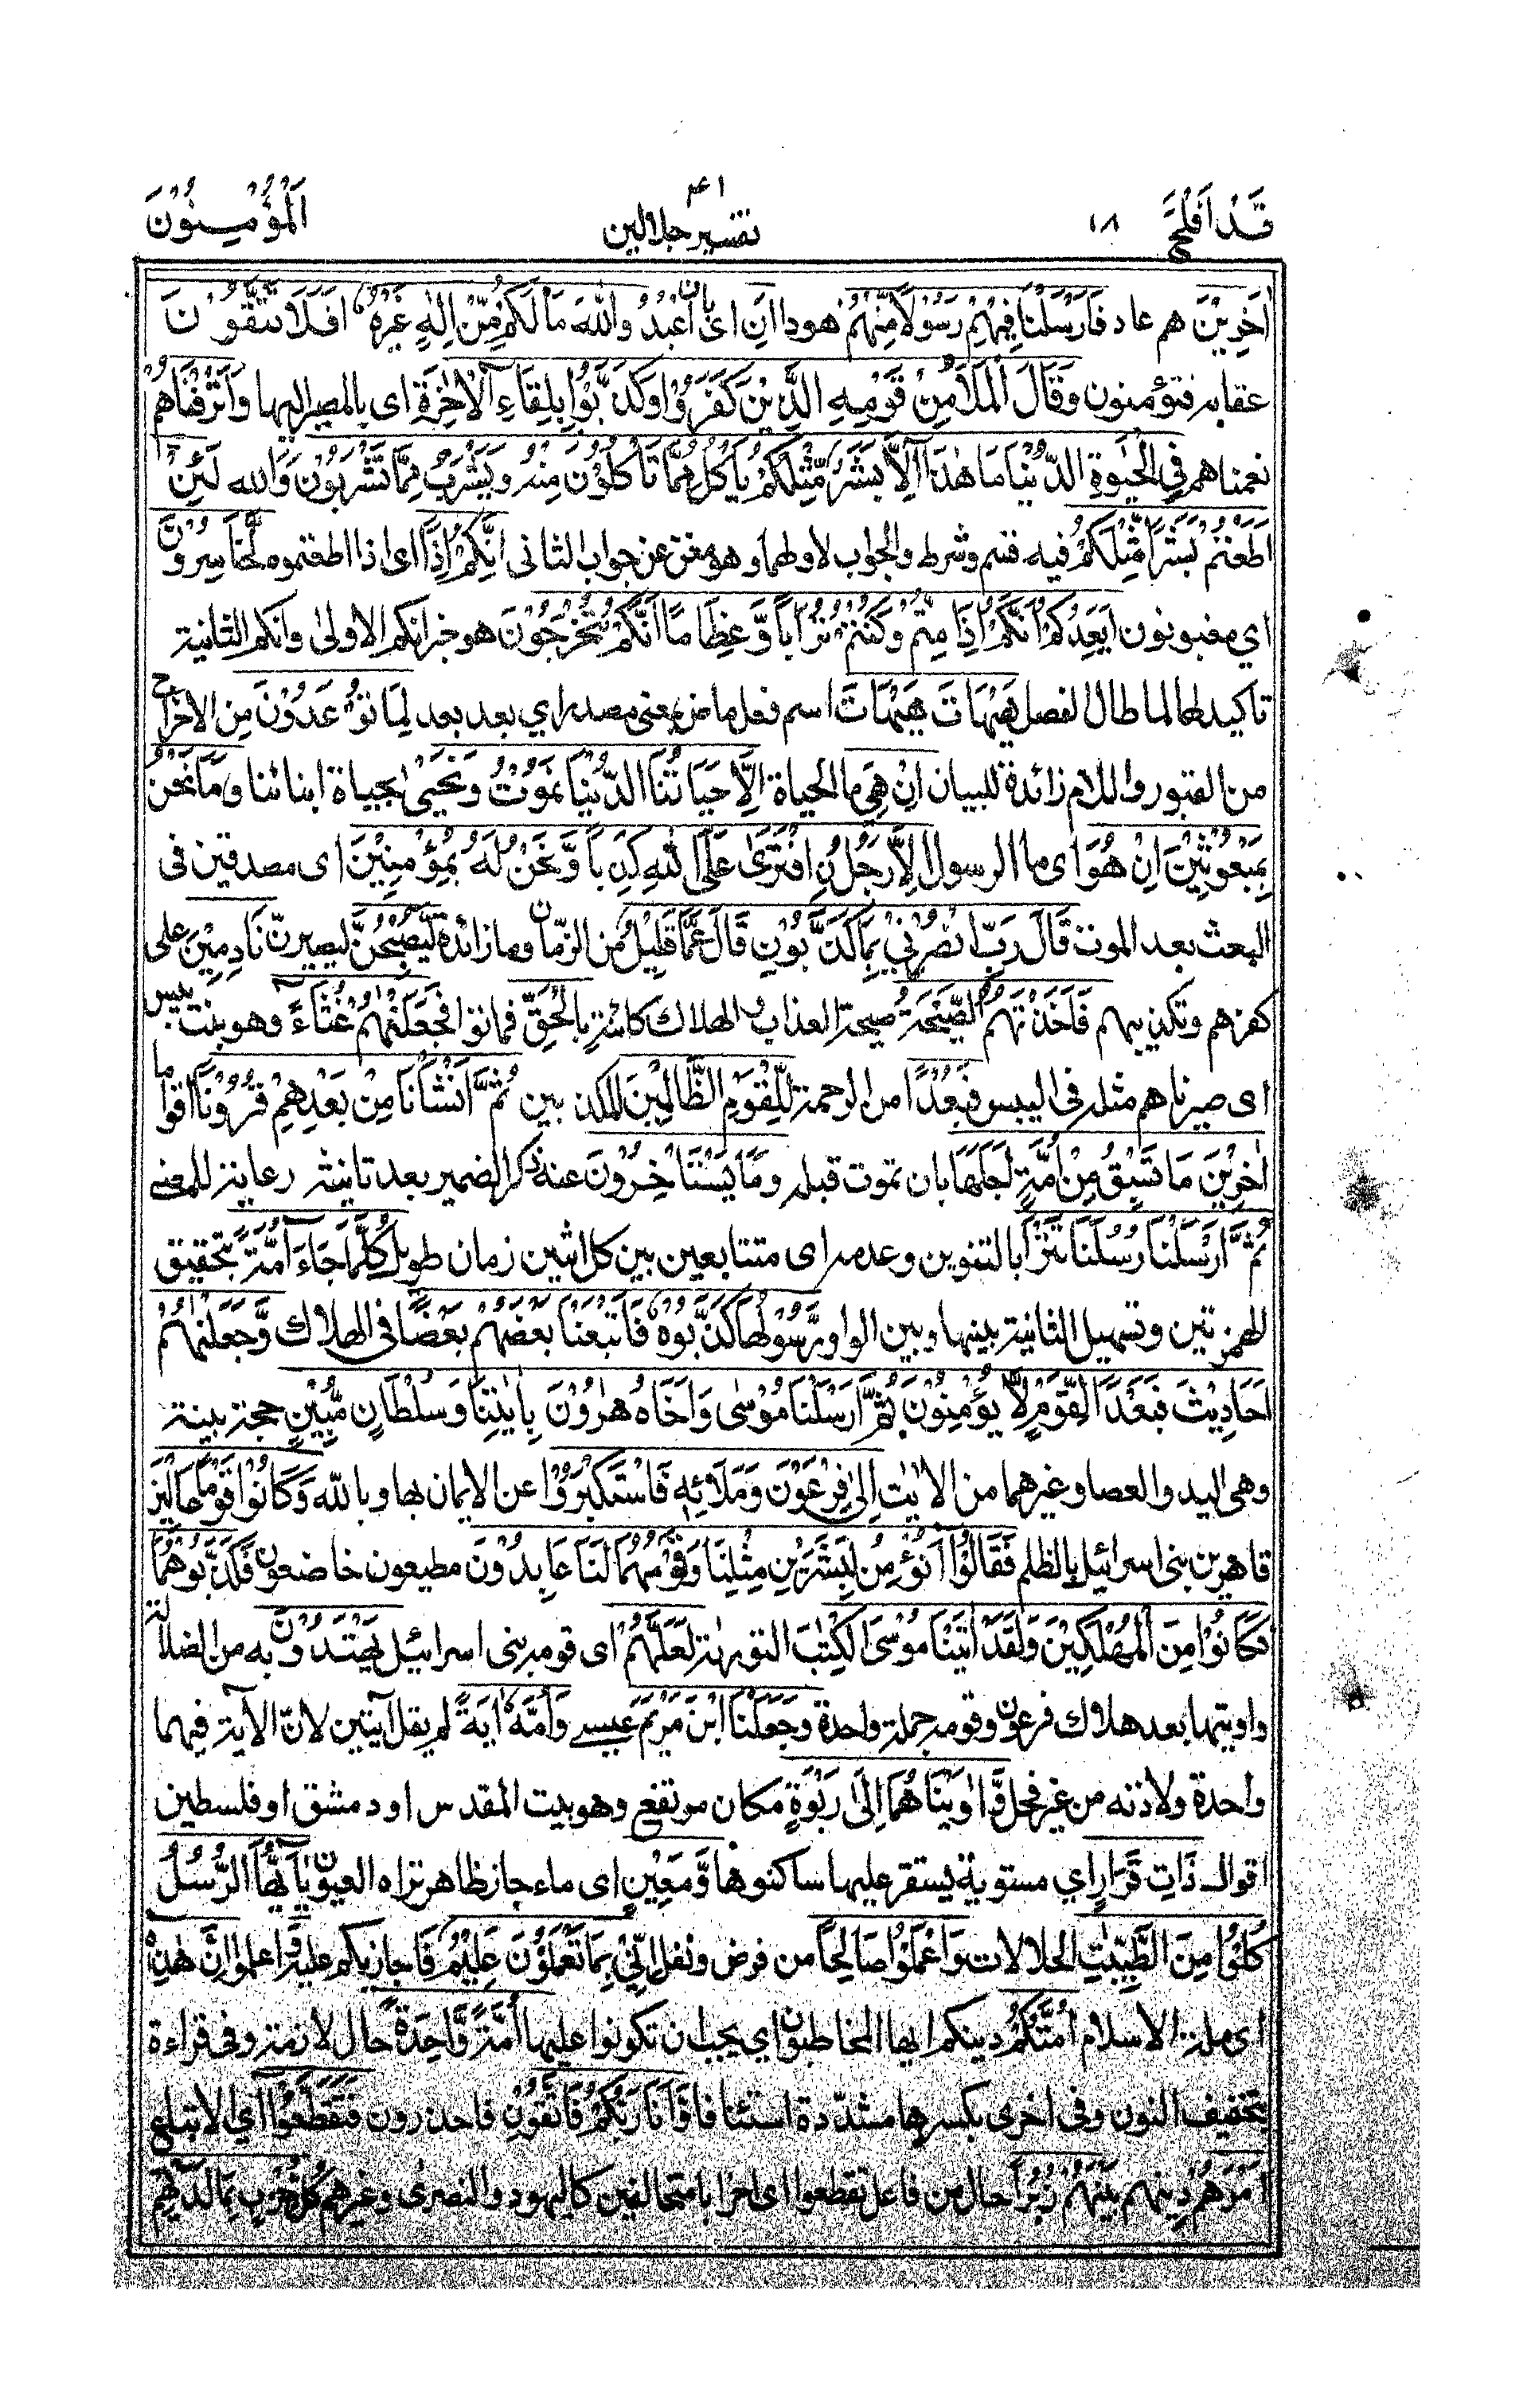 قَدْ اَفْلَحَ ١٨
٤١
تفسير جلالين
اَلْمُؤْمِنُوْنَ
اٰخَرِيْنَ هم عاد فَاَرْسَلْنَا فِيْهِمْ رَسُوْلًا مِّنْهُمْ هودا اَنِ اى بان اعْبُدُوا اللّٰهَ مَا لَكُمْ مِّنْ اِلٰهٍ غَيْرُهٗ اَفَلَا تَتَّقُوْنَ
عقابه فتؤمنون وَقَالَ الْمَلَاُ مِنْ قَوْمِهِ الَّذِيْنَ كَفَرُوْا وَكَذَّبُوْا بِلِقَآءِ الْاٰخِرَةِ اى بالمصير اليها وَاَتْرَفْنَاهُمْ
نعمناهم فِي الْحَيٰوةِ الدُّنْيَا مَا هٰذَآ اِلَّا بَشَرٌ مِّثْلُكُمْ يَاْكُلُ مِمَّا تَاْكُلُوْنَ مِنْهُ وَيَشْرَبُ مِمَّا تَشْرَبُوْنَ وَالله لَئِنْ
اَطَعْتُمْ بَشَرًا مِّثْلَكُمْ فيه قسم وشرط والجواب لاولهما وهو مغن عن جواب الثانى اِنَّكُمْ اِذًا اى اذا اطعتموه لَّخَاسِرُوْنَ
اي مغبونون اَيَعِدُكُمْ اَنَّكُمْ اِذَا مِتُّمْ وَكُنْتُمْ تُرَابًا وَّعِظَامًا اَنَّكُمْ مُّخْرَجُوْنَ هو خبر انكم الاولى وانكم الثانية
تاكيد لها لما طال الفصل هَيْهَاتَ هَيْهَاتَ اسم فعل ماض بمعنى مصدر اي بعد بعد لِمَا تُوْعَدُوْنَ من الاخراج
من القبور واللام زائدة للبيان اِنْ هِيَ ما الحياة اِلَّا حَيَاتُنَا الدُّنْيَا نَمُوْتُ وَنَحْيٰى بحياة ابنائنا وَمَا نَحْنُ
بِمَبْعُوْثِيْنَ اِنْ هُوَ اى ما الرسول اِلَّا رَجُلُ نِ افْتَرٰى عَلَى اللّٰهِ كَذِبًا وَّنَحْنُ لَهٗ بِمُؤْمِنِيْنَ اى مصدقين فى
البعث بعد الموت قَالَ رَبِّ انْصُرْنِيْ بِمَا كَذَّبُوْنِ قَالَ عَمَّا قَلِيْلٍ من الزمان وما زائدة لَّيُصْبِحُنَّ ليصيرن نَادِمِيْنَ على
كفرهم وتكذيبهم فَاَخَذَتْهُمُ الصَّيْحَةُ صيحة العذاب والهلاك كائنة بِالْحَقِّ فماتوا فَجَعَلْنٰهُمْ غُثَآءً وهو نبت يبس
اى صيرناهم مثله فى اليبس فَبُعْدًا من الرحمة لِّلْقَوْمِ الظَّالِمِيْنَ المكذبين ثُمَّ اَنْشَاْنَا مِنْ بَعْدِهِمْ قُرُوْنًا اقواما
اٰخَرِيْنَ مَا تَسْبِقُ مِنْ اُمَّةٍ اَجَلَهَا بان تموت قبله وَمَا يَسْتَاْخِرُوْنَ عنه ذكر الضمير بعد تانيثه رعاية للمعنى
ثُمَّ اَرْسَلْنَا رُسُلَنَا تَتْرًا بالتنوين وعدمه اى متتابعين بين كل اثنين زمان طويل كُلَّمَا جَآءَ اُمَّةً بتحقيق
الهمزتين وتسهيل الثانية بينها وبين الواو رَّسُوْلُهَا كَذَّبُوْهُ فَاَتْبَعْنَا بَعْضَهُمْ بَعْضًا فى الهلاك وَّجَعَلْنٰهُمْ
اَحَادِيْثَ فَبُعْدًا لِّقَوْمٍ لَّا يُؤْمِنُوْنَ ثُمَّ اَرْسَلْنَا مُوْسٰى وَاَخَاهُ هٰرُوْنَ بِاٰيٰتِنَا وَسُلْطَانٍ مُّبِيْنٍ حجة بينة
وهى اليد والعصا وغيرهما من الايٰت اِلٰى فِرْعَوْنَ وَمَلَائِهٖ فَاسْتَكْبَرُوْا عن الايمان بها وبالله وَكَانُوْا قَوْمًا عَالِيْنَ
قاهرين بنى اسرائيل بالظلم فَقَالُوْا اَنُؤْمِنُ لِبَشَرَيْنِ مِثْلِنَا وَقَوْمُهُمَا لَنَا عَابِدُوْنَ مطيعون خاضعون فَكَذَّبُوْهُمَا
فَكَانُوْا مِنَ الْمُهْلَكِيْنَ وَلَقَدْ اٰتَيْنَا مُوْسَى الْكِتٰبَ التورىٰة لَعَلَّهُمْ اى قومه بنى اسرائيل يَهْتَدُوْنَ به من الضلالة
واوتيها بعد هلاك فرعون وقومه جملة واحدة وَجَعَلْنَا ابْنَ مَرْيَمَ عيسى وَاُمَّهٗٓ اٰيَةً لم يقل آيتين لان الآية فيهما
واحدة ولادته من غير فحل وَّاٰوَيْنَاهُمَا اِلٰى رَبْوَةٍ مكان مرتفع وهو بيت المقدس او دمشق او فلسطين
اقوال ذَاتِ قَرَارٍ اي مستوية يستقر عليها ساكنوها وَّمَعِيْنٍ اى ماء جار ظاهر تراه العيون يٰٓاَيُّهَا الرُّسُلُ
كُلُوْا مِنَ الطَّيِّبٰتِ الحلالات وَاعْمَلُوْا صَالِحًا من فرض ونفل اِنِّيْ بِمَا تَعْمَلُوْنَ عَلِيْمٌ فاجازيكم عليه و اعلموا اِنَّ هٰذِهٖٓ
اى ملة الاسلام اُمَّتُكُمْ دينكم ايها المخاطبون اي يجب ان تكونوا عليها اُمَّةً وَّاحِدَةً حال لازمة وفى قراءة
بتخفيف النون وفى اخرى بكسرها مشددة استئنافا وَّاَنَا رَبُّكُمْ فَاتَّقُوْنِ فاحذرون فَتَقَطَّعُوْا اي الاتباع
اَمْرَهُمْ دينهم بَيْنَهُمْ زُبُرًا حال من فاعل تقطعوا اى احزابا متخالفين كاليهود والنصرى وغيرهم كُلُّ حِزْبٍ بِمَا لَدَيْهِمْ